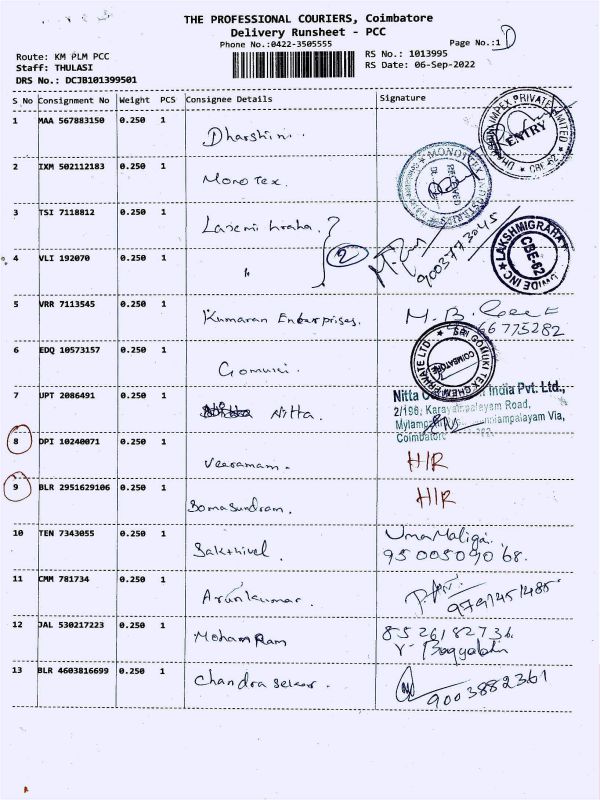 THE PROFESSIONAL COURIERS, Coimbatore
Delivery Runsheet - PCC
Phone No.:0422-3505555
Page No.:1
Route: KM PLM PCC
Staff: THULASI
DRS No.: DCJB101399501
RS No.: 1013995
RS Date: 06-Sep-2022
S No Consignment No Weight PCS Consignee Details Signature
1 MAA 567883150 0.250 1 Dharshini.
ENTRY
2 IXM 502112183 0.250 1 Monotex.
MONOTTEX INDUSTRIES
3 TSI 7118812 0.250 1 Laxmi
2 9003773045
LAKSHMIGRAHA WORLDWIDE INC
CBE-62
4 VLI 192070 0.250 1 "
5 VRR 7113545 0.250 1 Kumaran Enterprises. M.B.
66775282
6 EDQ 10573157 0.250 1 Gomuki.
SRI GOMUKI TEX CHEM PRIVATE LTD
COIMBATORE
7 UPT 2086491 0.250 1 Nitta.
Nitta India Pvt. Ltd.,
2/196, Karayampalayam Road,
Via,
Coimbatore
8 DPI 10240071 0.250 1 Veeramam. H/R
9 BLR 2951629106 0.250 1 Somasundram. H/R
10 TEN 7343055 0.250 1 Sakthivel. UmaMaligai.
95005090 68.
11 CMM 781734 0.250 1 Arunkumar.
9791451485
12 JAL 530217223 0.250 1 Moham Ram 8526182736
V- Bagyalatin
13 BLR 4603816699 0.250 1 Chandra sekar. 9003882361